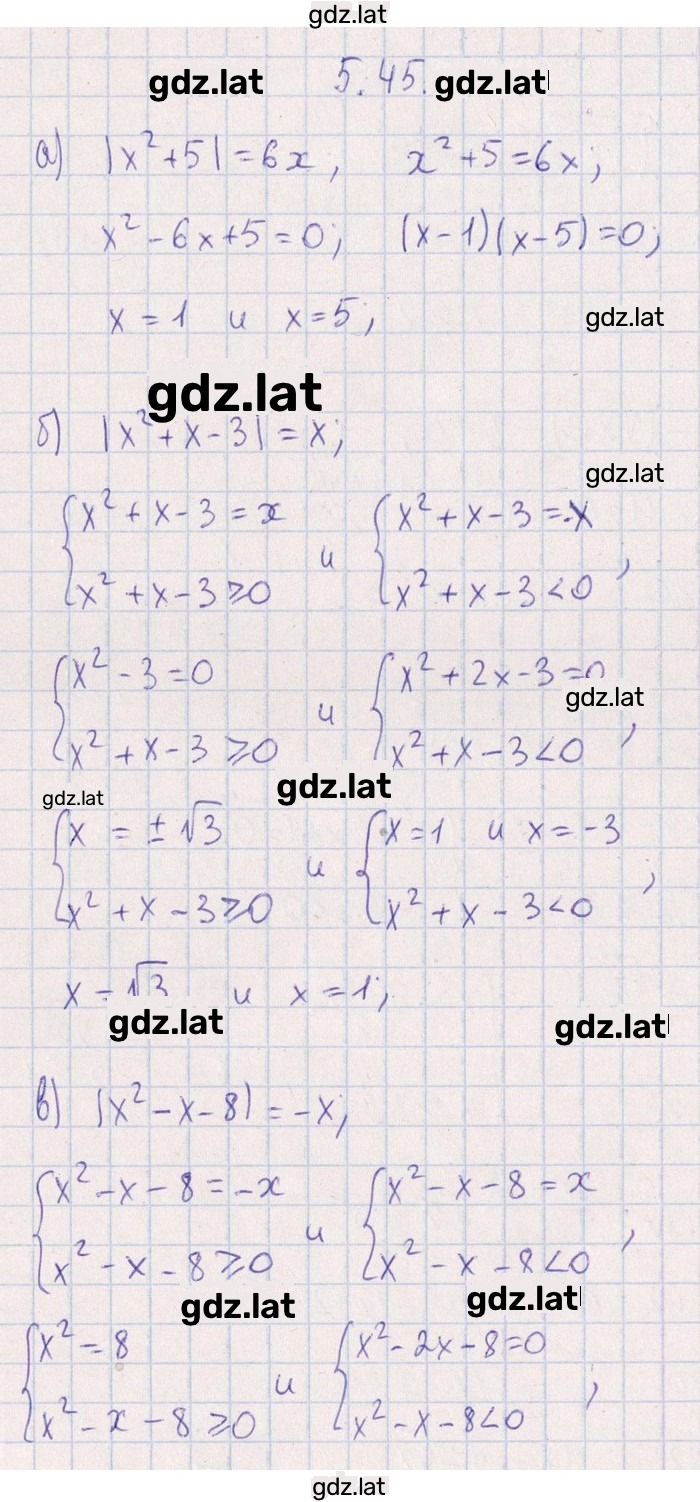 gdz.lat
gdz.lat 5.45. gdz.lat
а) |x²+5|=6x, x²+5=6x;
x²-6x+5=0; (x-1)(x-5)=0;
x=1 и x=5; gdz.lat
gdz.lat
б) |x²+x-3|=x;
gdz.lat
{x²+x-3=x и {x²+x-3=-x
{x²+x-3≥0 {x²+x-3<0 ,
{x²-3=0 и {x²+2x-3=0
gdz.lat
{x²+x-3≥0 {x²+x-3<0 ,
gdz.lat gdz.lat
{x=±√3 и {x=1 и x=-3
{x²+x-3≥0 {x²+x-3<0 ,
x=√3 и x=1;
gdz.lat gdz.lat
в) |x²-x-8|=-x;
{x²-x-8=-x и {x²-x-8=x
{x²-x-8≥0 {x²-x-8<0 ;
gdz.lat gdz.lat
{x²=8 и {x²-2x-8=0
{x²-x-8≥0 {x²-x-8<0 ,
gdz.lat